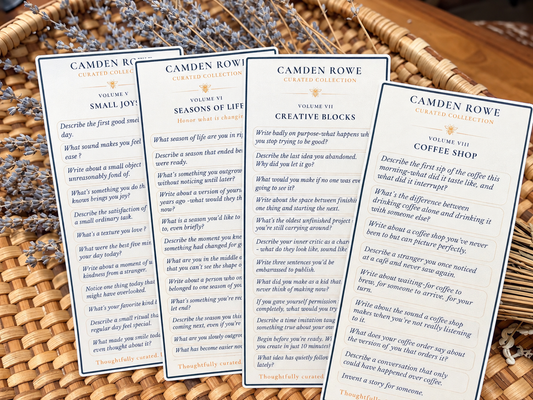 CAMDEN ROWE
CURATED COLLECTION
VOLUME V
SMALL JOYS
Describe the first good smel
day.
What sound makes you feel
ease ?
Write about a small object
unreasonably fond of.
What's something you do th
knows brings you joy?
Describe the satisfaction of
a small ordinary task.
What's a texture you love ?
What were the best five min
your day today?
Write about a moment of u
kindness from a stranger.
Notice one thing today that
might have overlooked.
What's your favorite kind
Describe a small ritual tha
regular day feel special.
What made you smile toda
even thought about it?
Thoughtfully curated
CAMDEN ROWE
CURATED COLLECTION
VOLUME VI
SEASONS OF LIFE
Honor what is changi
What season of life are you in rig
Describe a season that ended be
were ready.
What's something you outgrew
without noticing until later?
Write about a version of yourse
years ago - what would they th
now?
What in a season you'd like to
to, even briefly?
Describe the moment you kne
something had changed for g
What are you in the middle o
that you can't see the shape o
Write about a person who on
belonged to one season of yo
What's something you're no
let end?
Describe the season you thi
coming next, even if you're
What are you slowly outgrow
What has become easier
CAMDEN ROWE
CURATED COLLECTION
VOLUME VII
CREATIVE BLOCKS
Write badly on purpose-what happens wh
you stop trying to be good?
Describe the last idea you abandoned.
Why did you let it go?
What would you make if no one was eve
going to see it?
Write about the space between finishin
one thing and starting the next.
What's the oldest unfinished project
you're still carrying around?
Describe your inner critic as a chara
- what do they look like, sound like
Write three sentences you'd be
embarrassed to publish.
What did you make as a kid that
never think of making now?
If you gave yourself permission
completely, what would you try
Describe a time imitation taug
something true about your ow
Begin before you're ready. W
you create in just 10 minutes
What idea has quietly follow
lately?
Thoughtfully curated
CAMDEN ROWE
CURATED COLLECTION
VOLUME VIII
COFFEE SHOP
Describe the first sip of the coffee this
morning-what did it taste like, and
what did it interrupt?
What's the difference between
drinking coffee alone and drinking it
with someone else?
Write about a coffee shop you've never
been to but can picture perfectly.
Describe a stranger you once noticed
at a café and never saw again.
Write about waiting-for coffee to
brew, for someone to arrive, for your
turn.
Write about the sound a coffee shop
makes when you're not really listening
to it.
What does your coffee order say about
the version of you that orders it?
Describe a conversation that only
could have happened over coffee.
Invent a story for someone.